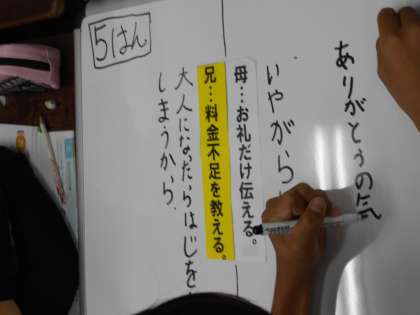 5はん
ありがとうの気
いやがら
母…お礼だけ伝える。
兄…料金不足を教える。
大人になったらはじを
しまうから。